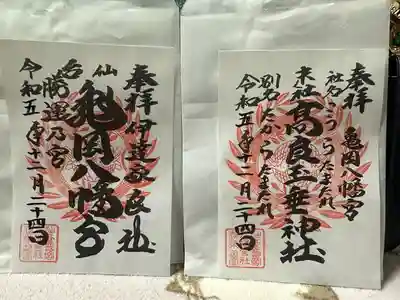 奉拝
伊達家守護社
仙台
亀岡八幡宮
勝運乃宮
令和五年十二月二十四日
奉拝
亀岡八幡宮
社名こうらたまだれ
末社
高良玉垂神社
別名たからたまたれ
令和五年十二月二十四日